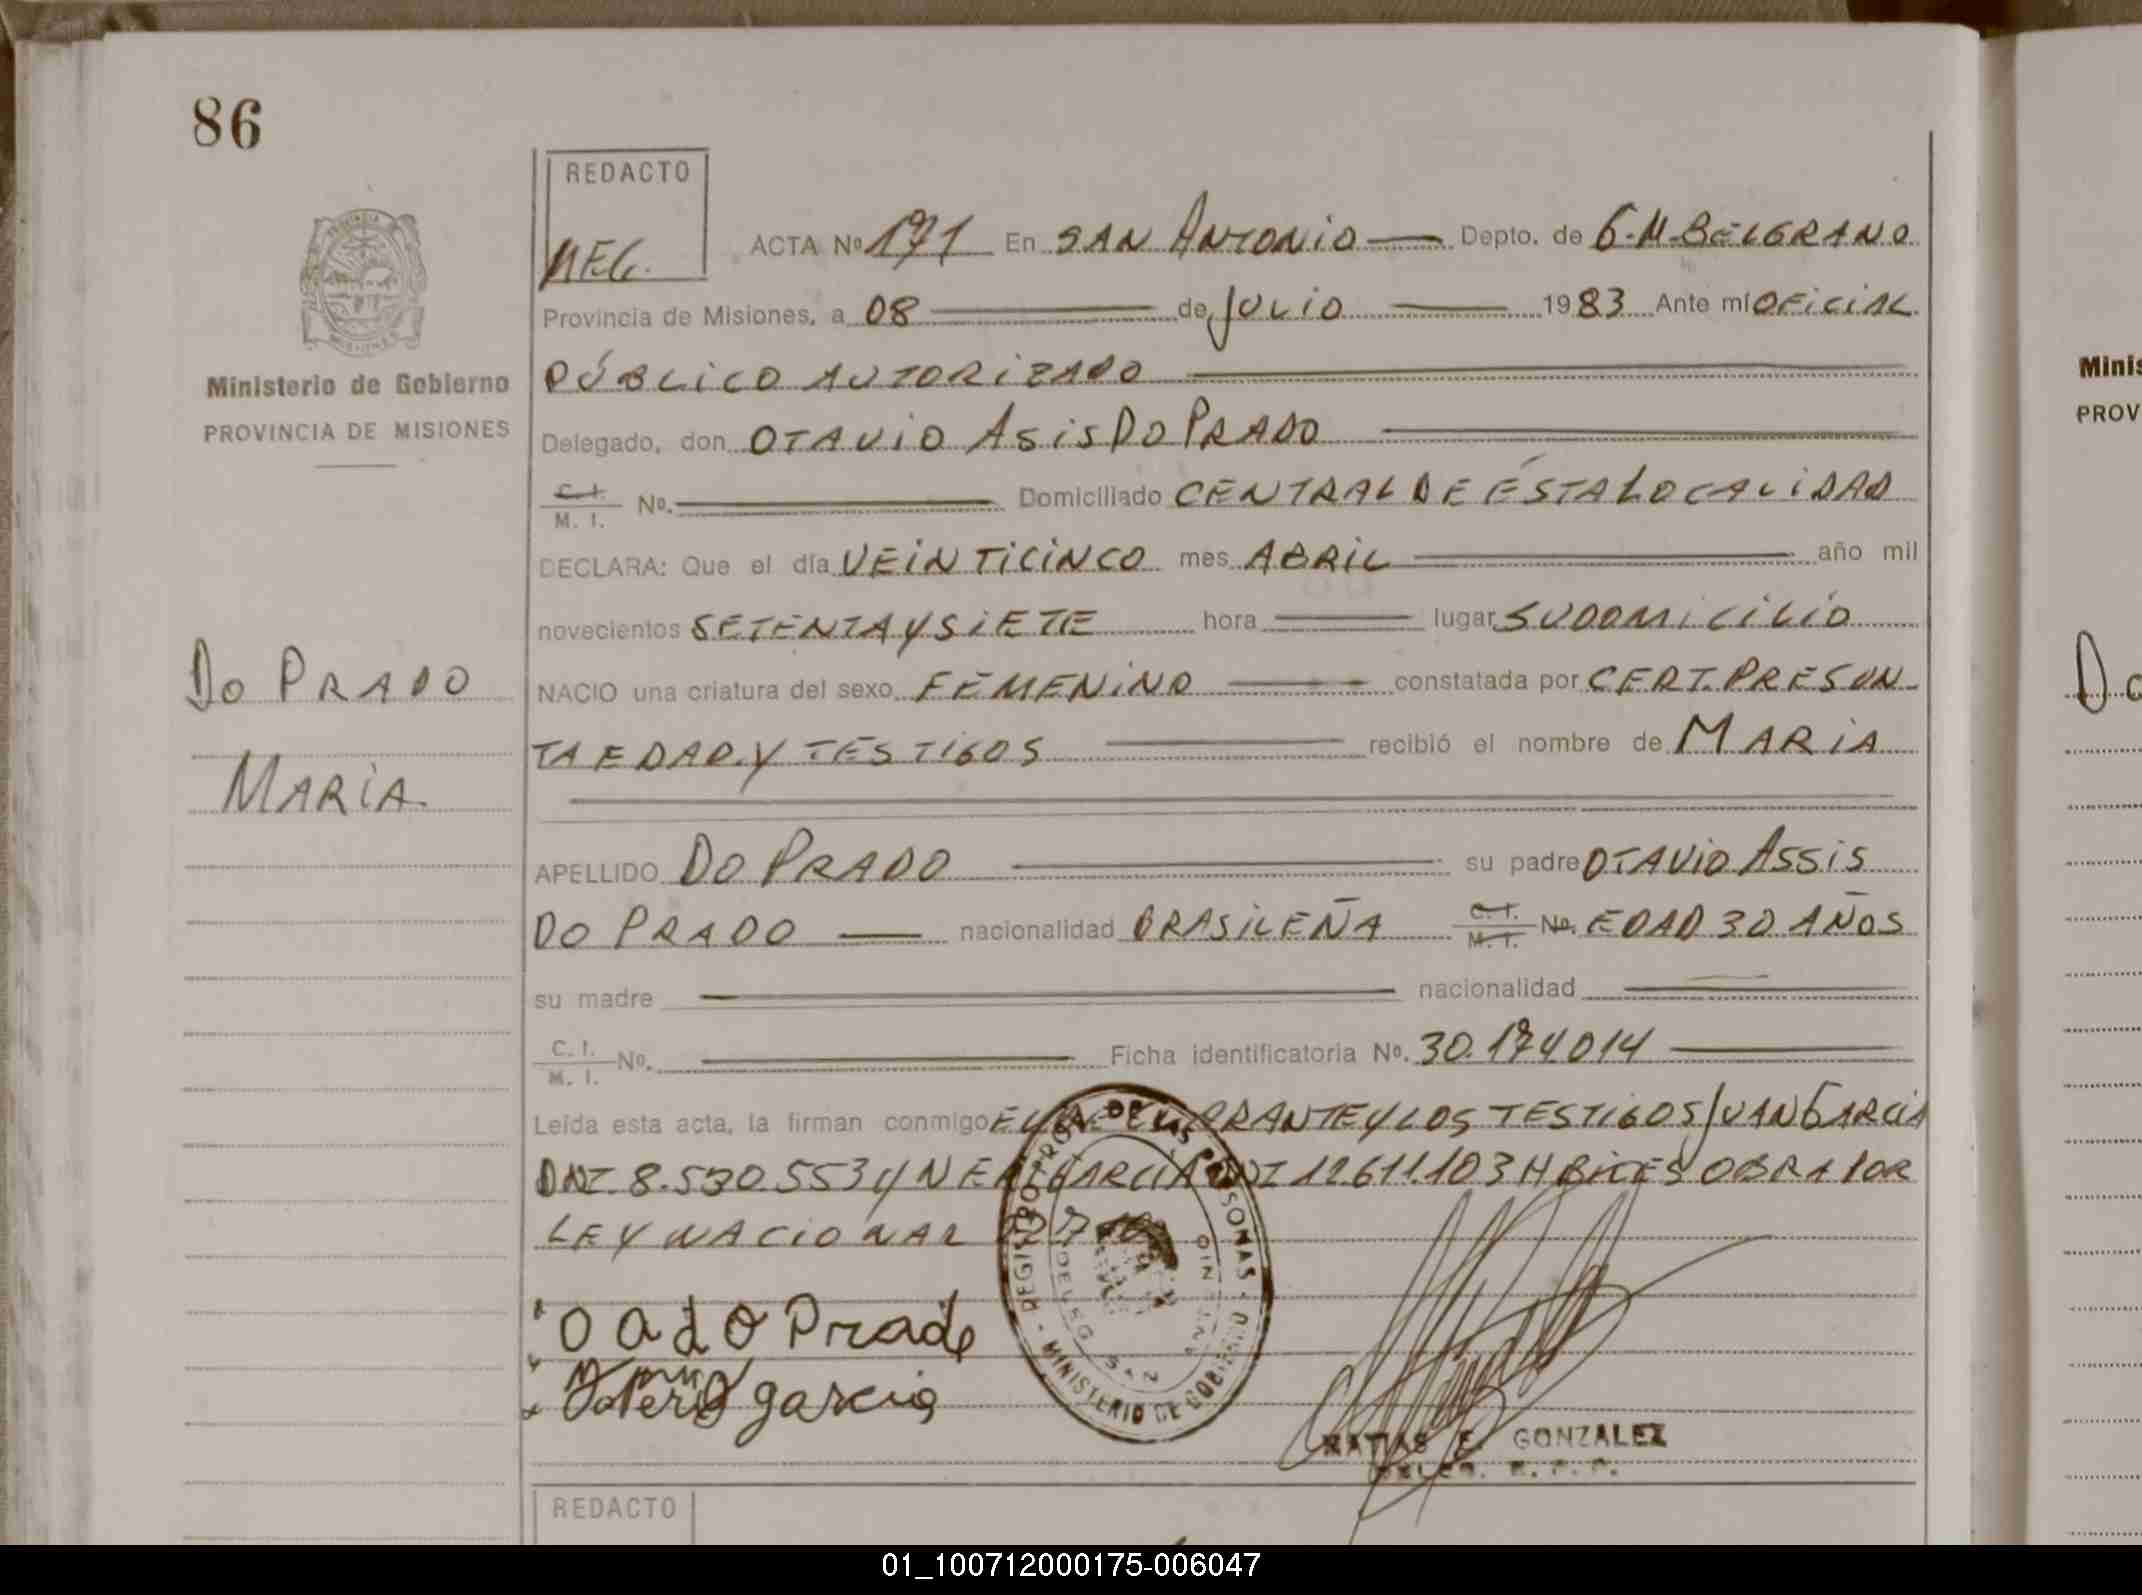 86
REDACTO
MEG.
ACTA Nº 171 En SAN ANTONIO Depto. de G.M. BELGRANO
Provincia de Misiones, a 08 de JULIO 1983 Ante mí OFICIAL
PÚBLICO AUTORIZADO
Ministerio de Gobierno
PROVINCIA DE MISIONES
Delegado, don OTAVIO ASIS DO PRADO
C.I. M.I. No. Domiciliado CENTRAL DE ÉSTA LOCALIDAD
DECLARA: Que el día VEINTICINCO mes ABRIL año mil
novecientos SETENTA Y SIETE hora lugar SU DOMICILIO
DO PRADO
NACIO una criatura del sexo FEMENINO constatada por CERT. PRESUN-
TA EDAD. Y TESTIGOS recibió el nombre de MARIA
MARIA
APELLIDO DO PRADO su padre OTAVIO ASSIS
DO PRADO nacionalidad BRASILEÑA C.I. M.I. No. EDAD 30 AÑOS
su madre nacionalidad
C.I. M.I. No. Ficha identificatoria No. 30.174014
Leída esta acta, la firman conmigo TESTIGOS JUAN GARCIA
DNI. 8.530.553 Y GARCIA DNI 12.611.103 OBRA POR
LEY NACIONAL
O A do Prado
garcia
REGISTRO DE LAS PERSONAS - MINISTERIO DE GOBIERNO
MATIAS E. GONZALEZ
REDACTO
Minis
PROV
Do
01_100712000175-006047